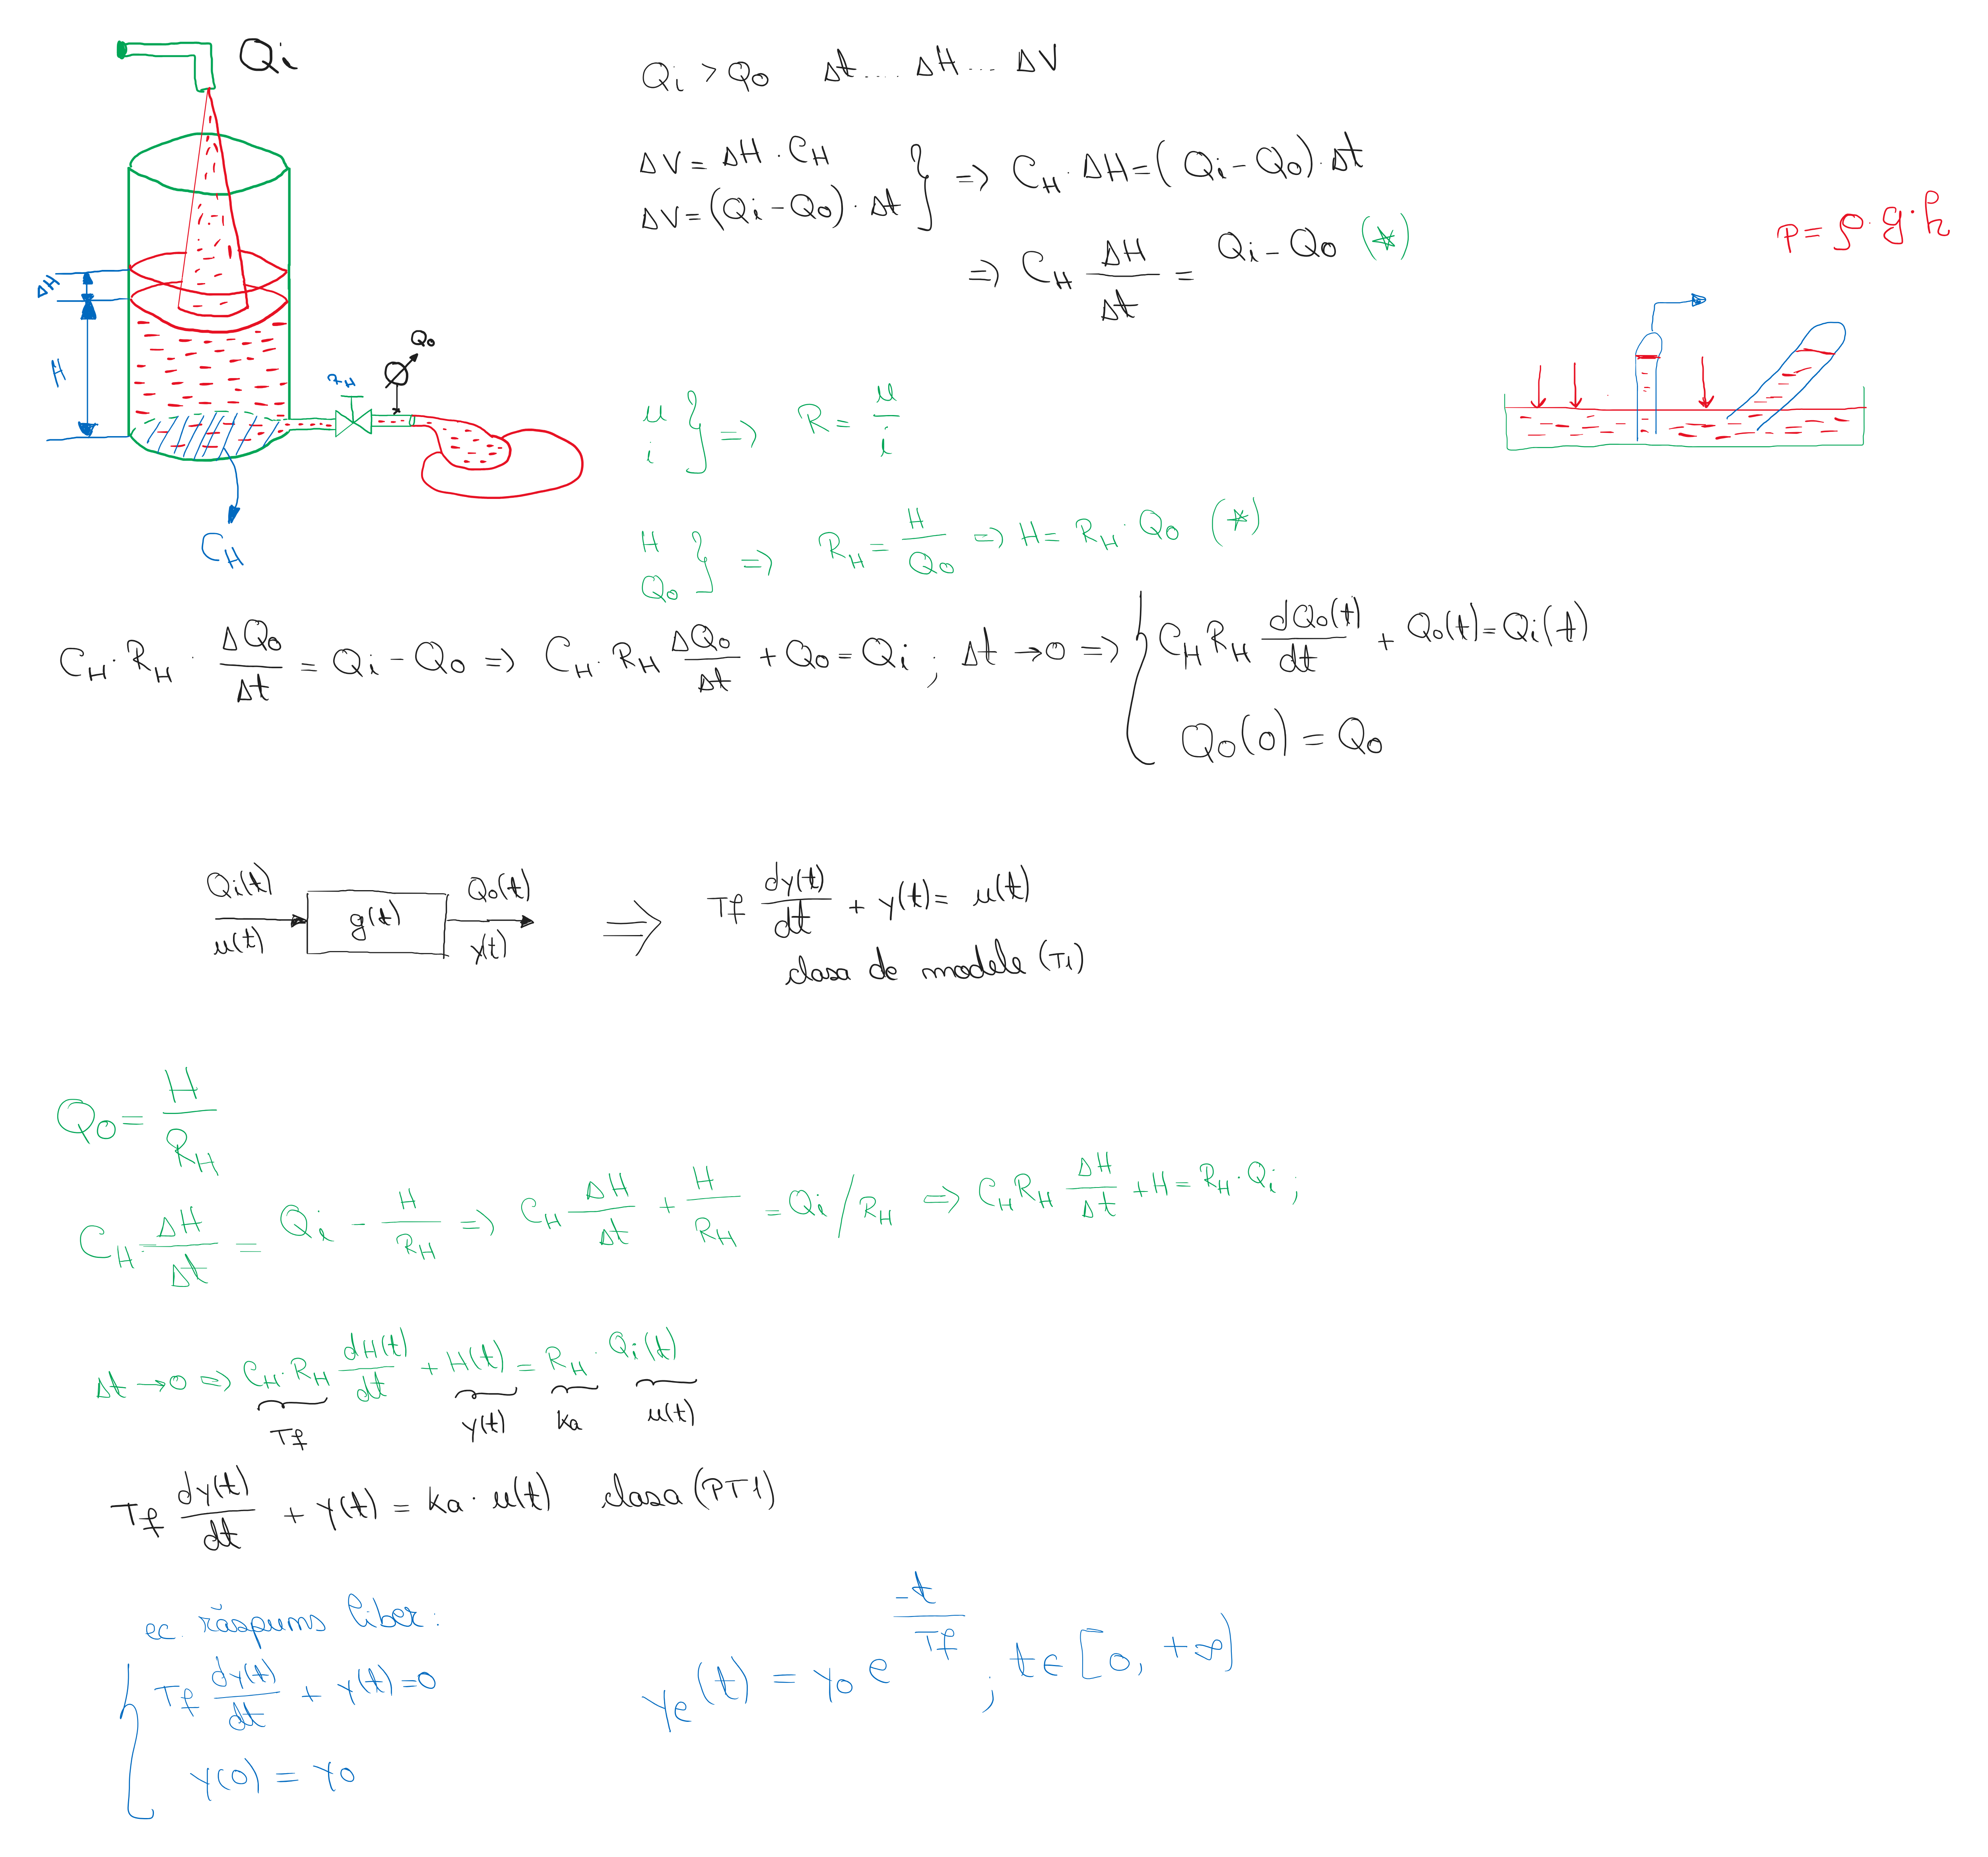 Qi
Qi > Qo Δt.... ΔH... ΔV
ΔV = ΔH · C_H
ΔV = (Qi - Qo) · Δt } => C_H · ΔH = (Qi - Qo) · Δt
=> C_H ΔH/Δt = Qi - Qo (*)
P = ρ · g · h
ΔH
H
R_H
Qo
C_H
u
i } => R = u/i
H
Qo } => R_H = H/Qo => H = R_H · Qo (*)
C_H · R_H · ΔQo/Δt = Qi - Qo => C_H · R_H ΔQo/Δt + Qo = Qi ; Δt → 0 => { C_H R_H dQo(t)/dt + Qo(t) = Qi(t)
Qo(0) = Qo
Qi(t)
u(t)
g(t)
Qo(t)
y(t)
=> Tf dy(t)/dt + y(t) = u(t)
clasa de modele (T1)
Qo = H/R_H
C_H · ΔH/Δt = Qi - H/R_H => C_H ΔH/Δt + H/R_H = Qi / R_H => C_H R_H ΔH/Δt + H = R_H · Qi ;
Δt → 0 => C_H · R_H dH(t)/dt + H(t) = R_H · Qi(t)
Tf y(t) ka u(t)
Tf dy(t)/dt + y(t) = ka · u(t) clasa (PT1)
ec. răspuns liber:
{ Tf dy(t)/dt + y(t) = 0
y(0) = y0
ye(t) = y0 e^(-t/Tf) ; t ∈ [0, +∞)